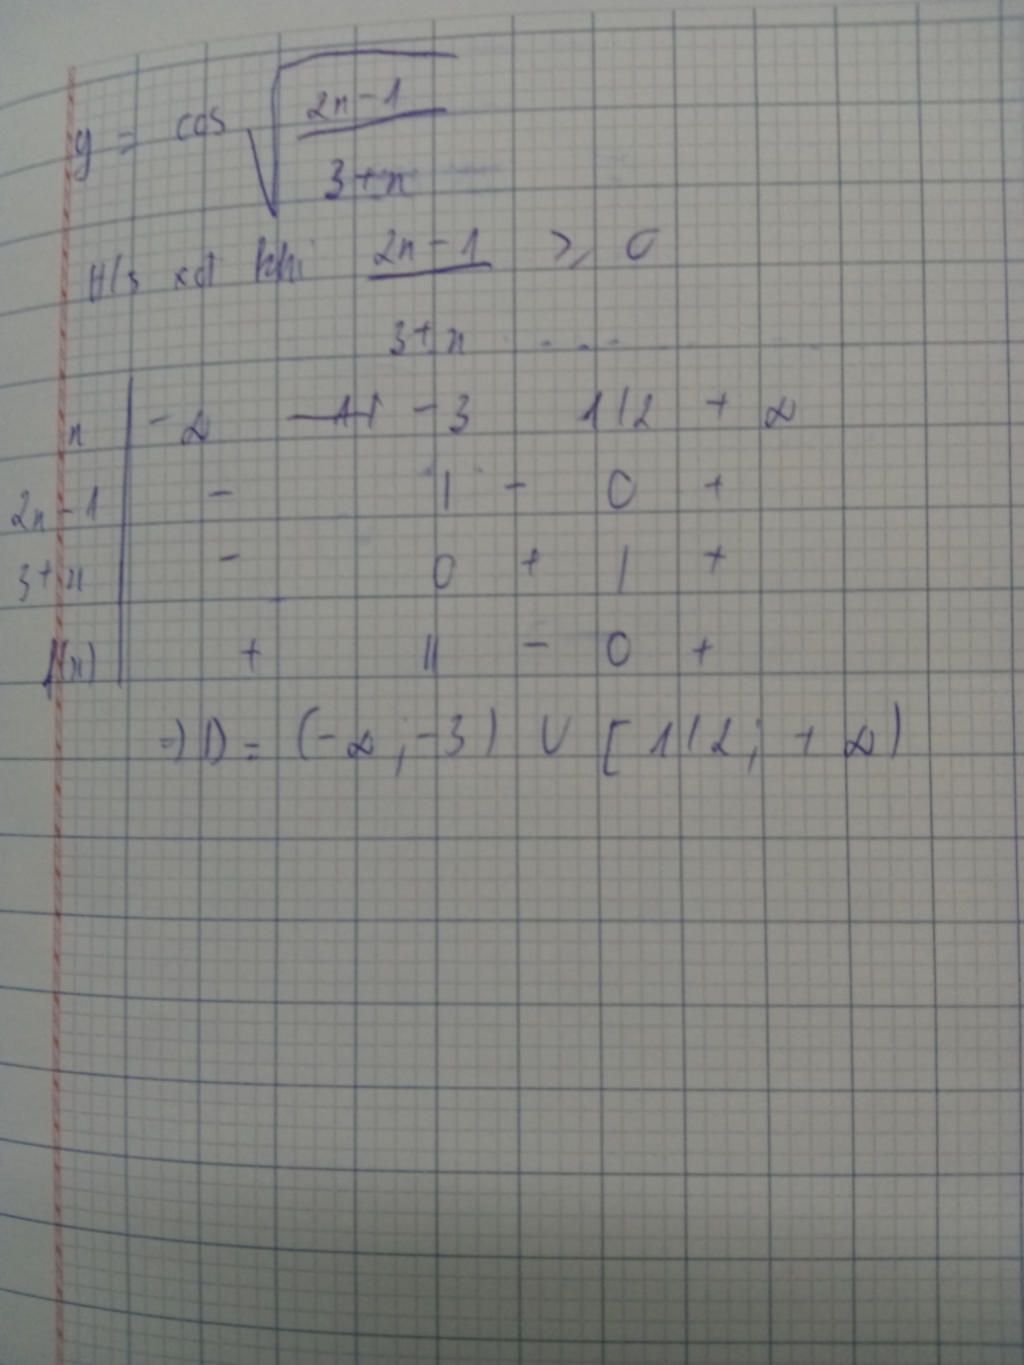 y = cos √(2x-1
3+x)
H/s xđ khi 2x-1 ≥ 0
3+x
x | -∞ -3 1/2 +∞
2x-1 | - | - 0 +
3+x | - 0 + | +
f(x) | + || - 0 +
=) D = (-∞; -3) ∪ [1/2; +∞)